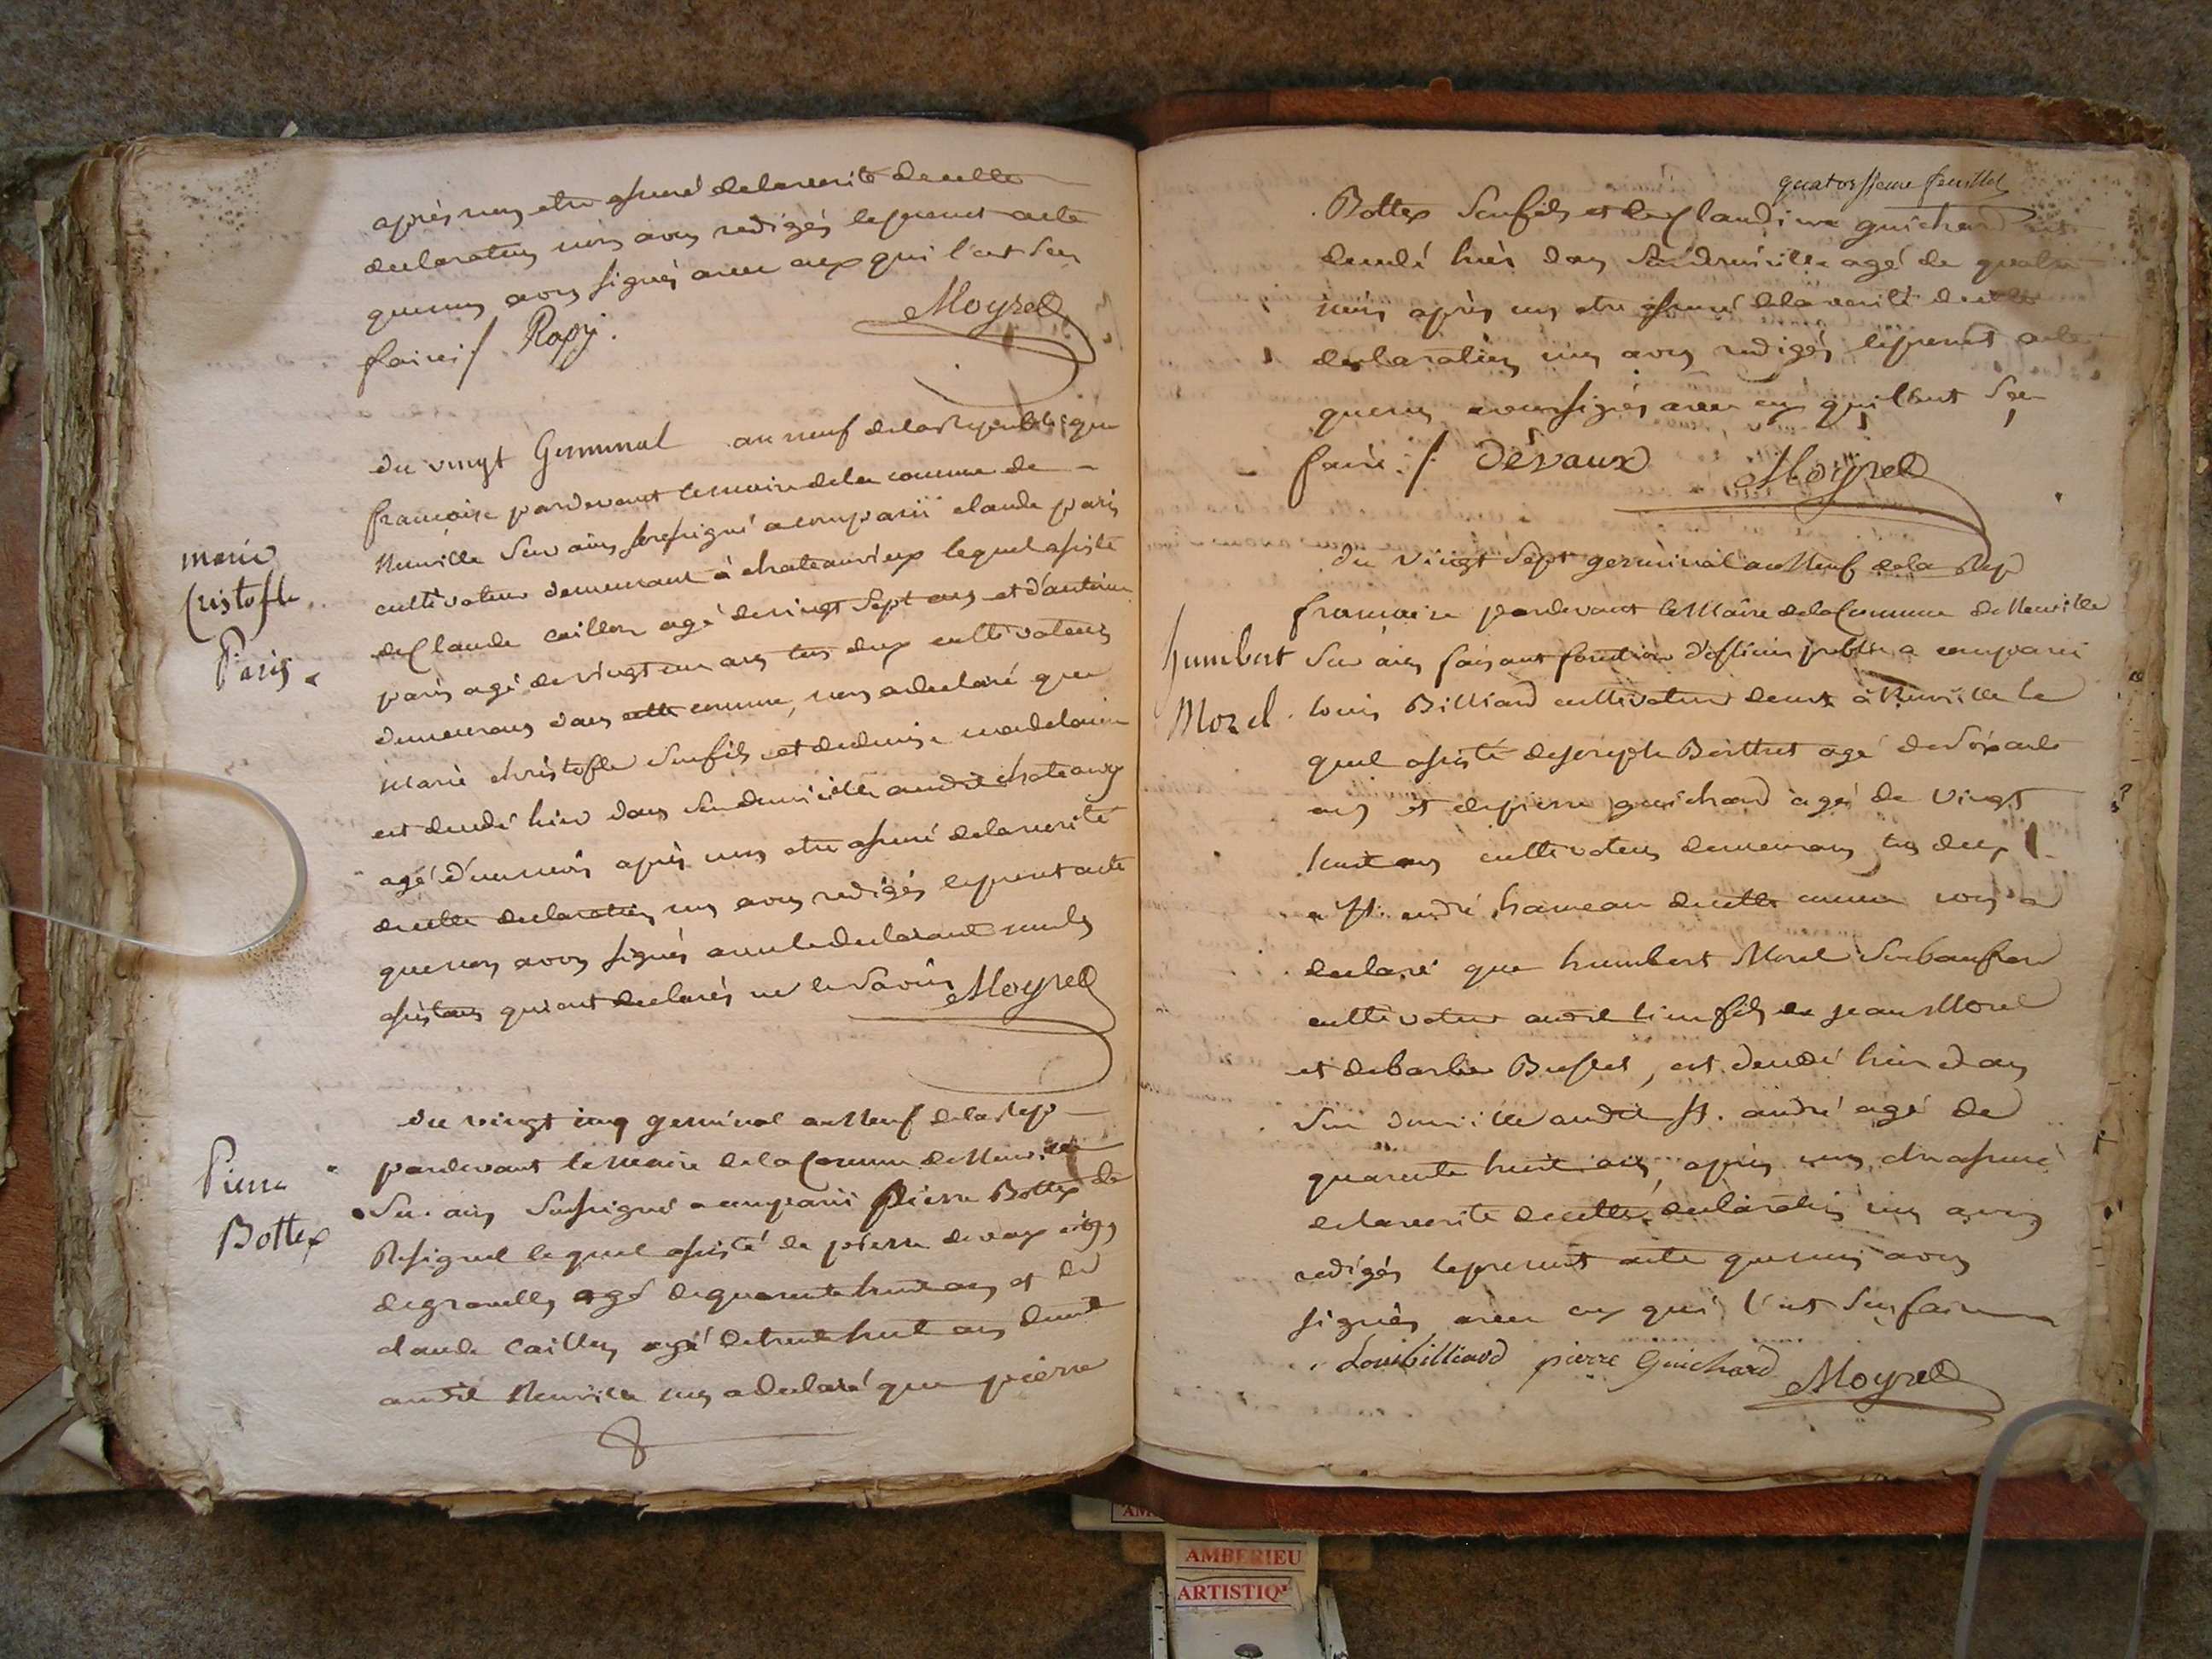 après nous etre assuré de la verité de cette
declaration nous avons redigés le present acte
que nous avons signés avec eux qui l'ont seu
faire ./ Rapy. Moyret
du vingt Germinal an neuf de la Republique
francaise pardevant le maire de la comune de
Neuville sur ains soussigné a comparu claude paris
marie
Cristofle
Paris
cultivateur demeurant à chateauvieux lequel assisté
de Claude caillon agé de vingt sept ans et d'antoine
paris agé de vingt un ans tous deux cultivateurs
demeurans dans cette comune, nous a declaré que
marie christofle son fils et de denise madelaine
est decedé hier dans son domicille audit chateauv
agé d'un mois après nous etre assuré de la verité
de cette declaration nous avons redigés le present acte
que nous avons signés avec le declarant non les
assistans qui ont declarés ne le savoir Moyret
du vingt cinq germinal an Neuf de la Rep
Pierre
Bottex
pardevant le maire de la Comune de Neuville
Sur ains soussigné a comparu pierre Bottex de
Resignel lequel assisté de pierre devaux
de gravelles agé de quarente huit ans et de
claude Caillon agé de trente huit ans demt
audit Neuville nous a declaré que pierre
quatorsieme feuillet
Bottex son fils et de Claudine guichard est
decedé hièr dans son domicille agé de quatre
mois après nous etre assuré de la verité de cette
declaration nous avons redigés le present acte
que nous avons signés avec eux qui l'ont seu
faire ./ Dévaux Moyret
du vingt sept germinal an Neuf de la Rep
francaise pardevant le Maire de la Comune de Neuville
humbert
Morel
Sur ains faisant fonction d'officier public a comparu
louis Billiard cultivateur demt à Neuville le
quel assisté de joseph Berthet agé de soixante
ans et de pierre guichard agé de vingt
huit ans cultivateurs demeurans tous deux
a St. andré hameau de cette comune nous a
declaré que humbert Morel son beaufrere
cultivateur audit lieu fils de jean Morel
et de barbe Buffet, est decedé hier dans
Son domicille audit St. andré agé de
quarente huit ans, après nous etre assuré
de la verité de cette declaration nous avons
redigés le present acte que nous avons
signés avec eux qui l'ont seu faire
Louis billiard pierre Guichard Moyret
AMBERIEU
ARTISTIQ